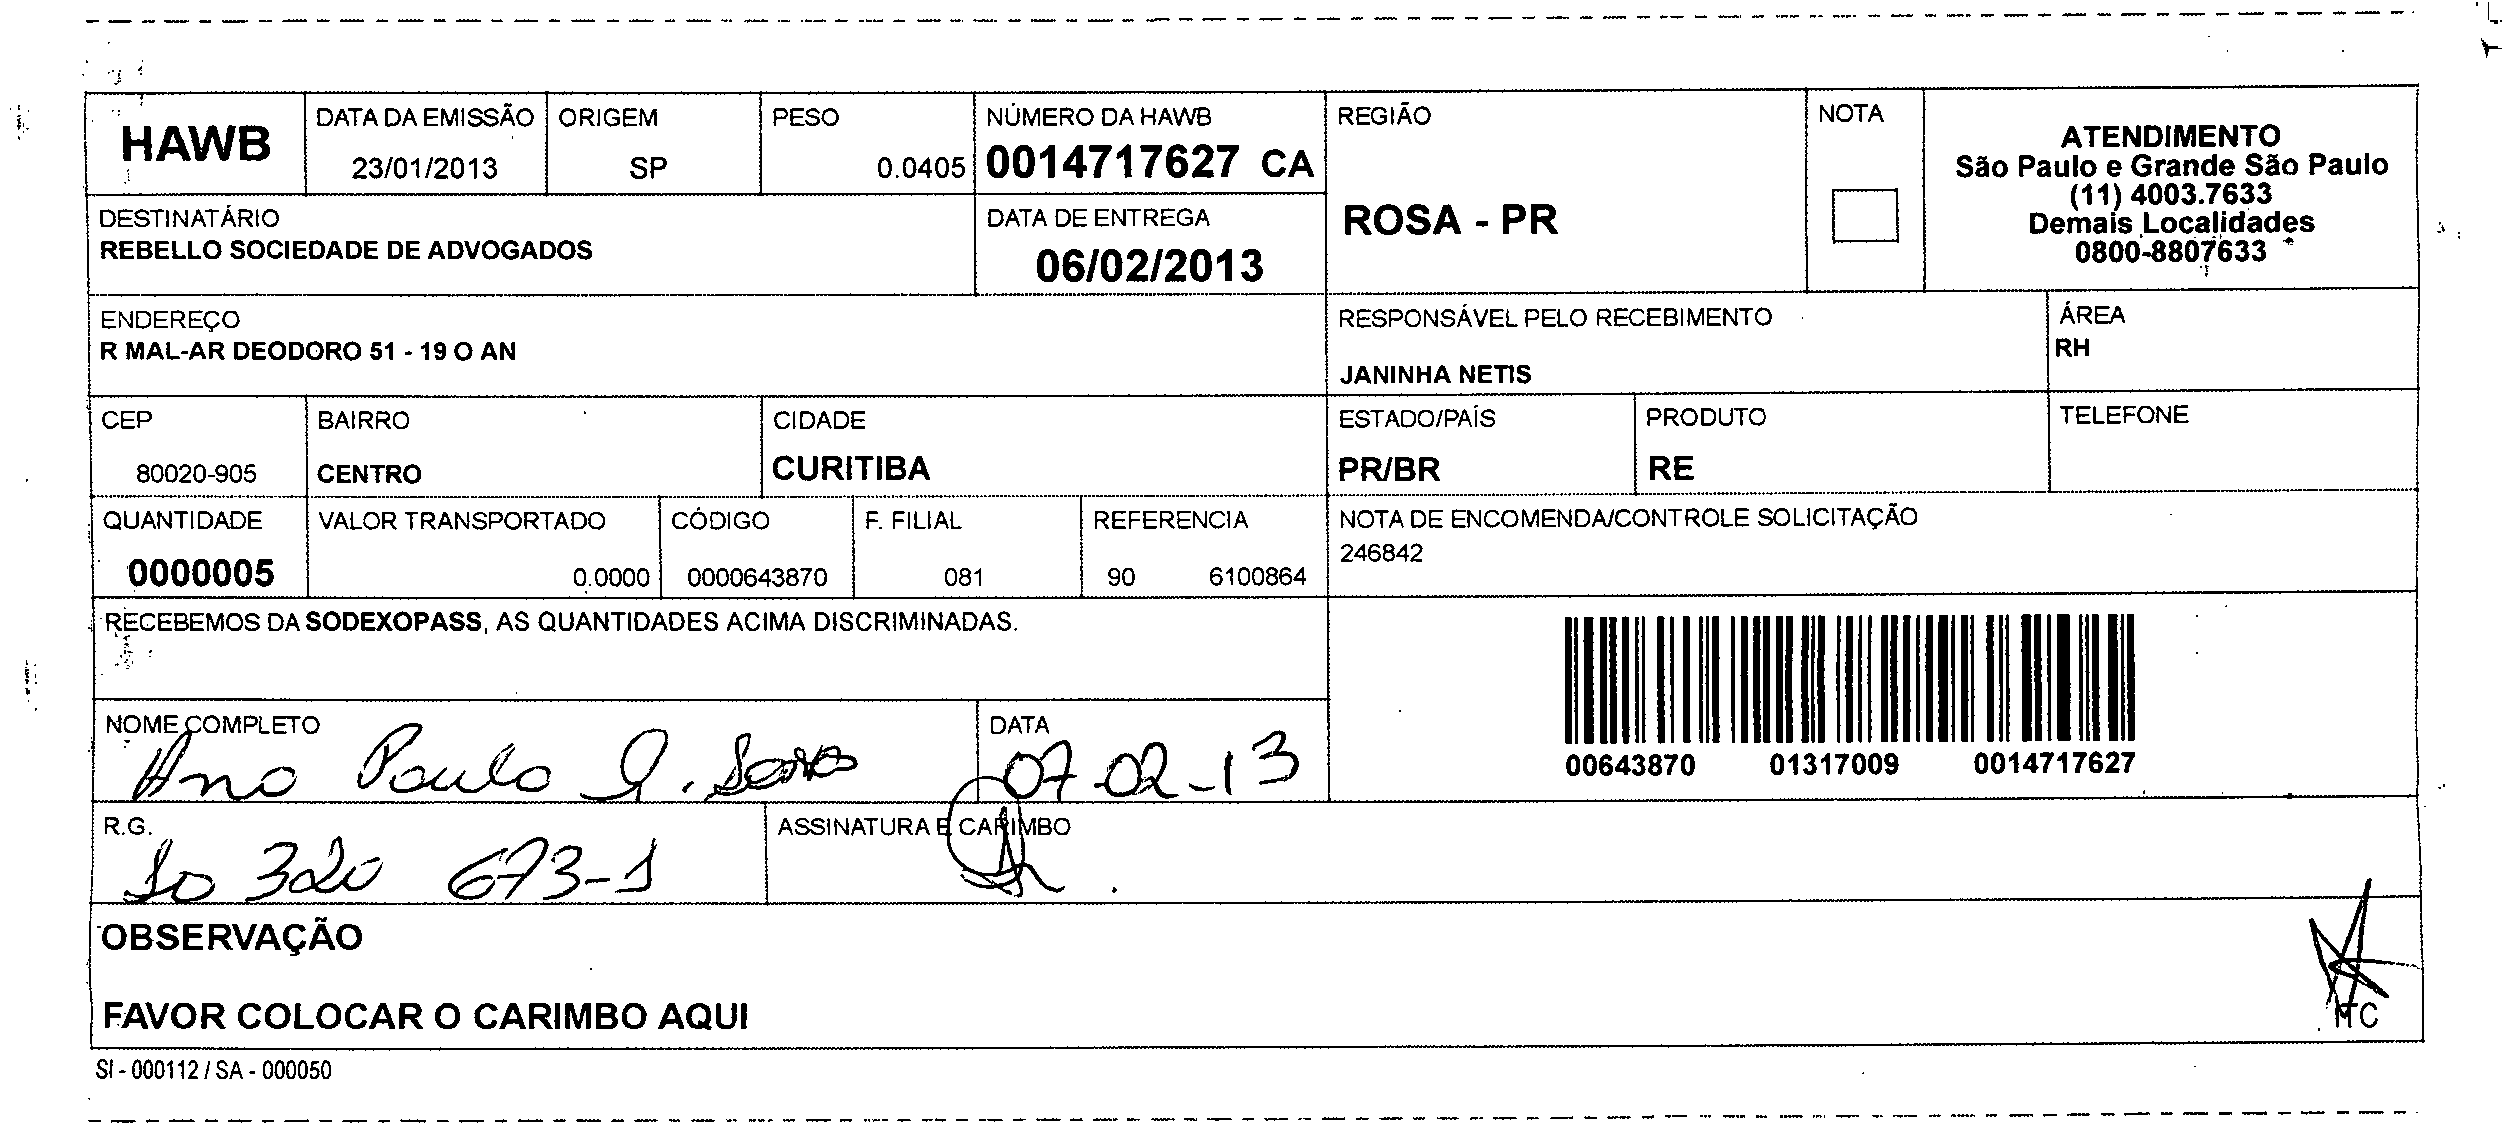 HAWB
DATA DA EMISSÃO
23/01/2013
ORIGEM
SP
PESO
0.0405
NÚMERO DA HAWB
0014717627 CA
REGIÃO
ROSA - PR
NOTA
ATENDIMENTO
São Paulo e Grande São Paulo
(11) 4003.7633
Demais Localidades
0800-8807633
DESTINATÁRIO
REBELLO SOCIEDADE DE ADVOGADOS
DATA DE ENTREGA
06/02/2013
ENDEREÇO
R MAL-AR DEODORO 51 - 19 O AN
RESPONSÁVEL PELO RECEBIMENTO
JANINHA NETIS
ÁREA
RH
CEP
80020-905
BAIRRO
CENTRO
CIDADE
CURITIBA
ESTADO/PAÍS
PR/BR
PRODUTO
RE
TELEFONE
QUANTIDADE
0000005
VALOR TRANSPORTADO
0.0000
CÓDIGO
0000643870
F. FILIAL
081
REFERENCIA
90 6100864
NOTA DE ENCOMENDA/CONTROLE SOLICITAÇÃO
246842
RECEBEMOS DA SODEXOPASS, AS QUANTIDADES ACIMA DISCRIMINADAS.
00643870 01317009 0014717627
NOME COMPLETO
Ana Paula G.
DATA
07-02-13
R.G.
10 320 673-1
ASSINATURA E CARIMBO
OBSERVAÇÃO
FAVOR COLOCAR O CARIMBO AQUI
TC
SI - 000112 / SA - 000050